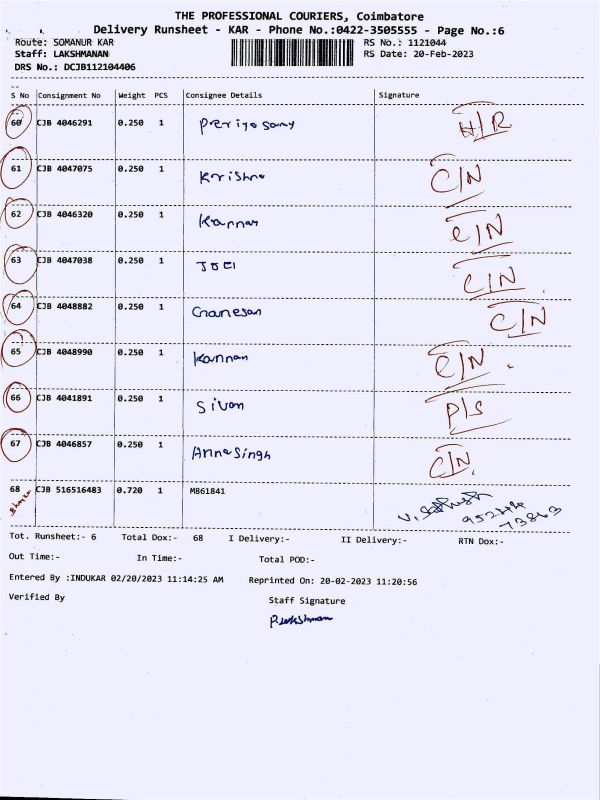 THE PROFESSIONAL COURIERS, Coimbatore
Delivery Runsheet - KAR - Phone No.:0422-3505555 - Page No.:6
Route: SOMANUR KAR RS No.: 1121044
Staff: LAKSHMANAN RS Date: 20-Feb-2023
DRS No.: DCJB112104406
S No Consignment No Weight PCS Consignee Details Signature
60 CJB 4046291 0.250 1 Periyosamy H/R
61 CJB 4047075 0.250 1 Krishna C/N
62 CJB 4046320 0.250 1 Kannan C/N
63 CJB 4047038 0.250 1 JOEl C/N
64 CJB 4048882 0.250 1 Ganesan C/N
65 CJB 4048990 0.250 1 Kannan C/N
66 CJB 4041891 0.250 1 Sivan P/S
67 CJB 4046857 0.250 1 AnnaSingh C/N
68 CJB 516516483 0.720 1 MB61841
Tot. Runsheet:- 6 Total Dox:- 68 I Delivery:- II Delivery:- RTN Dox:-
Out Time:- In Time:- Total POD:-
Entered By :INDUKAR 02/20/2023 11:14:25 AM Reprinted On: 20-02-2023 11:20:56
Verified By Staff Signature